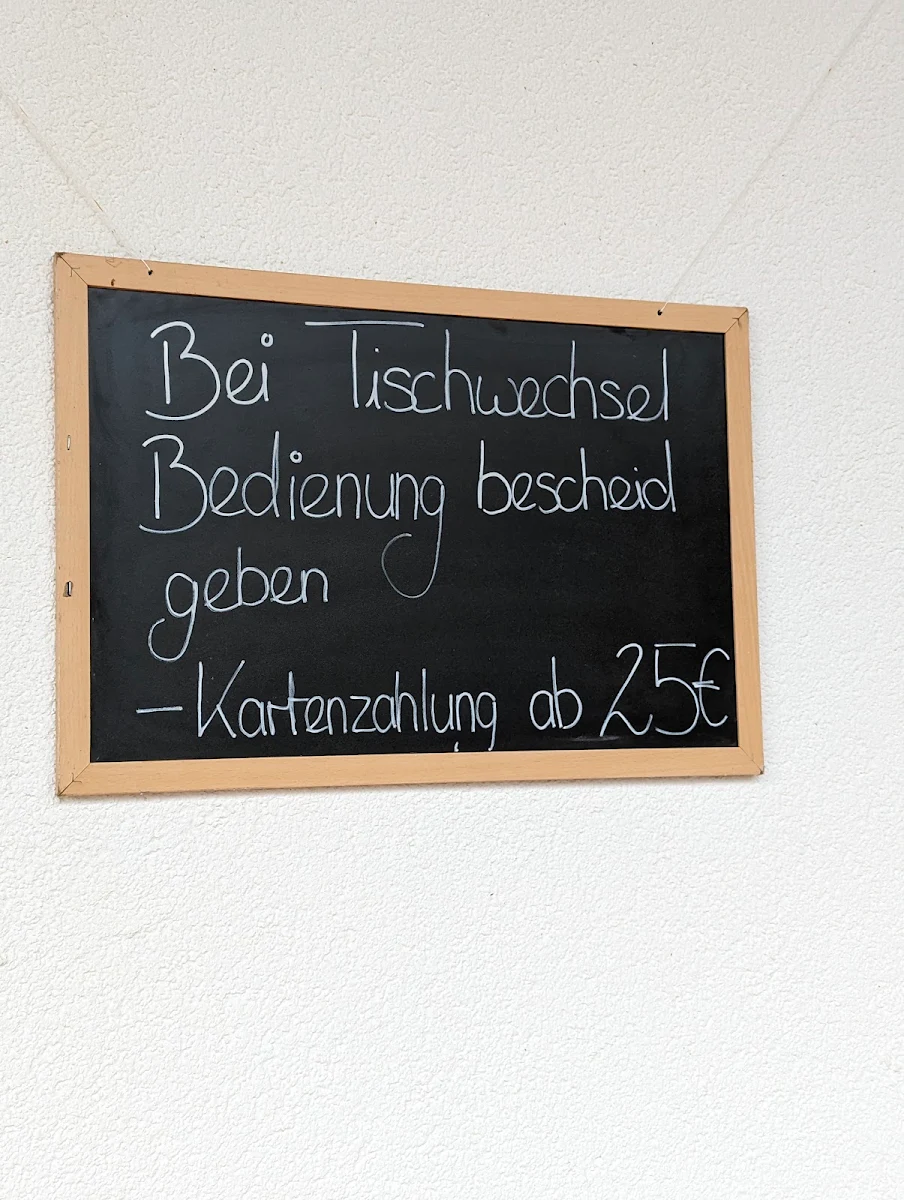 Bei Tischwechsel
Bedienung bescheid
geben
- Kartenzahlung ab 25€